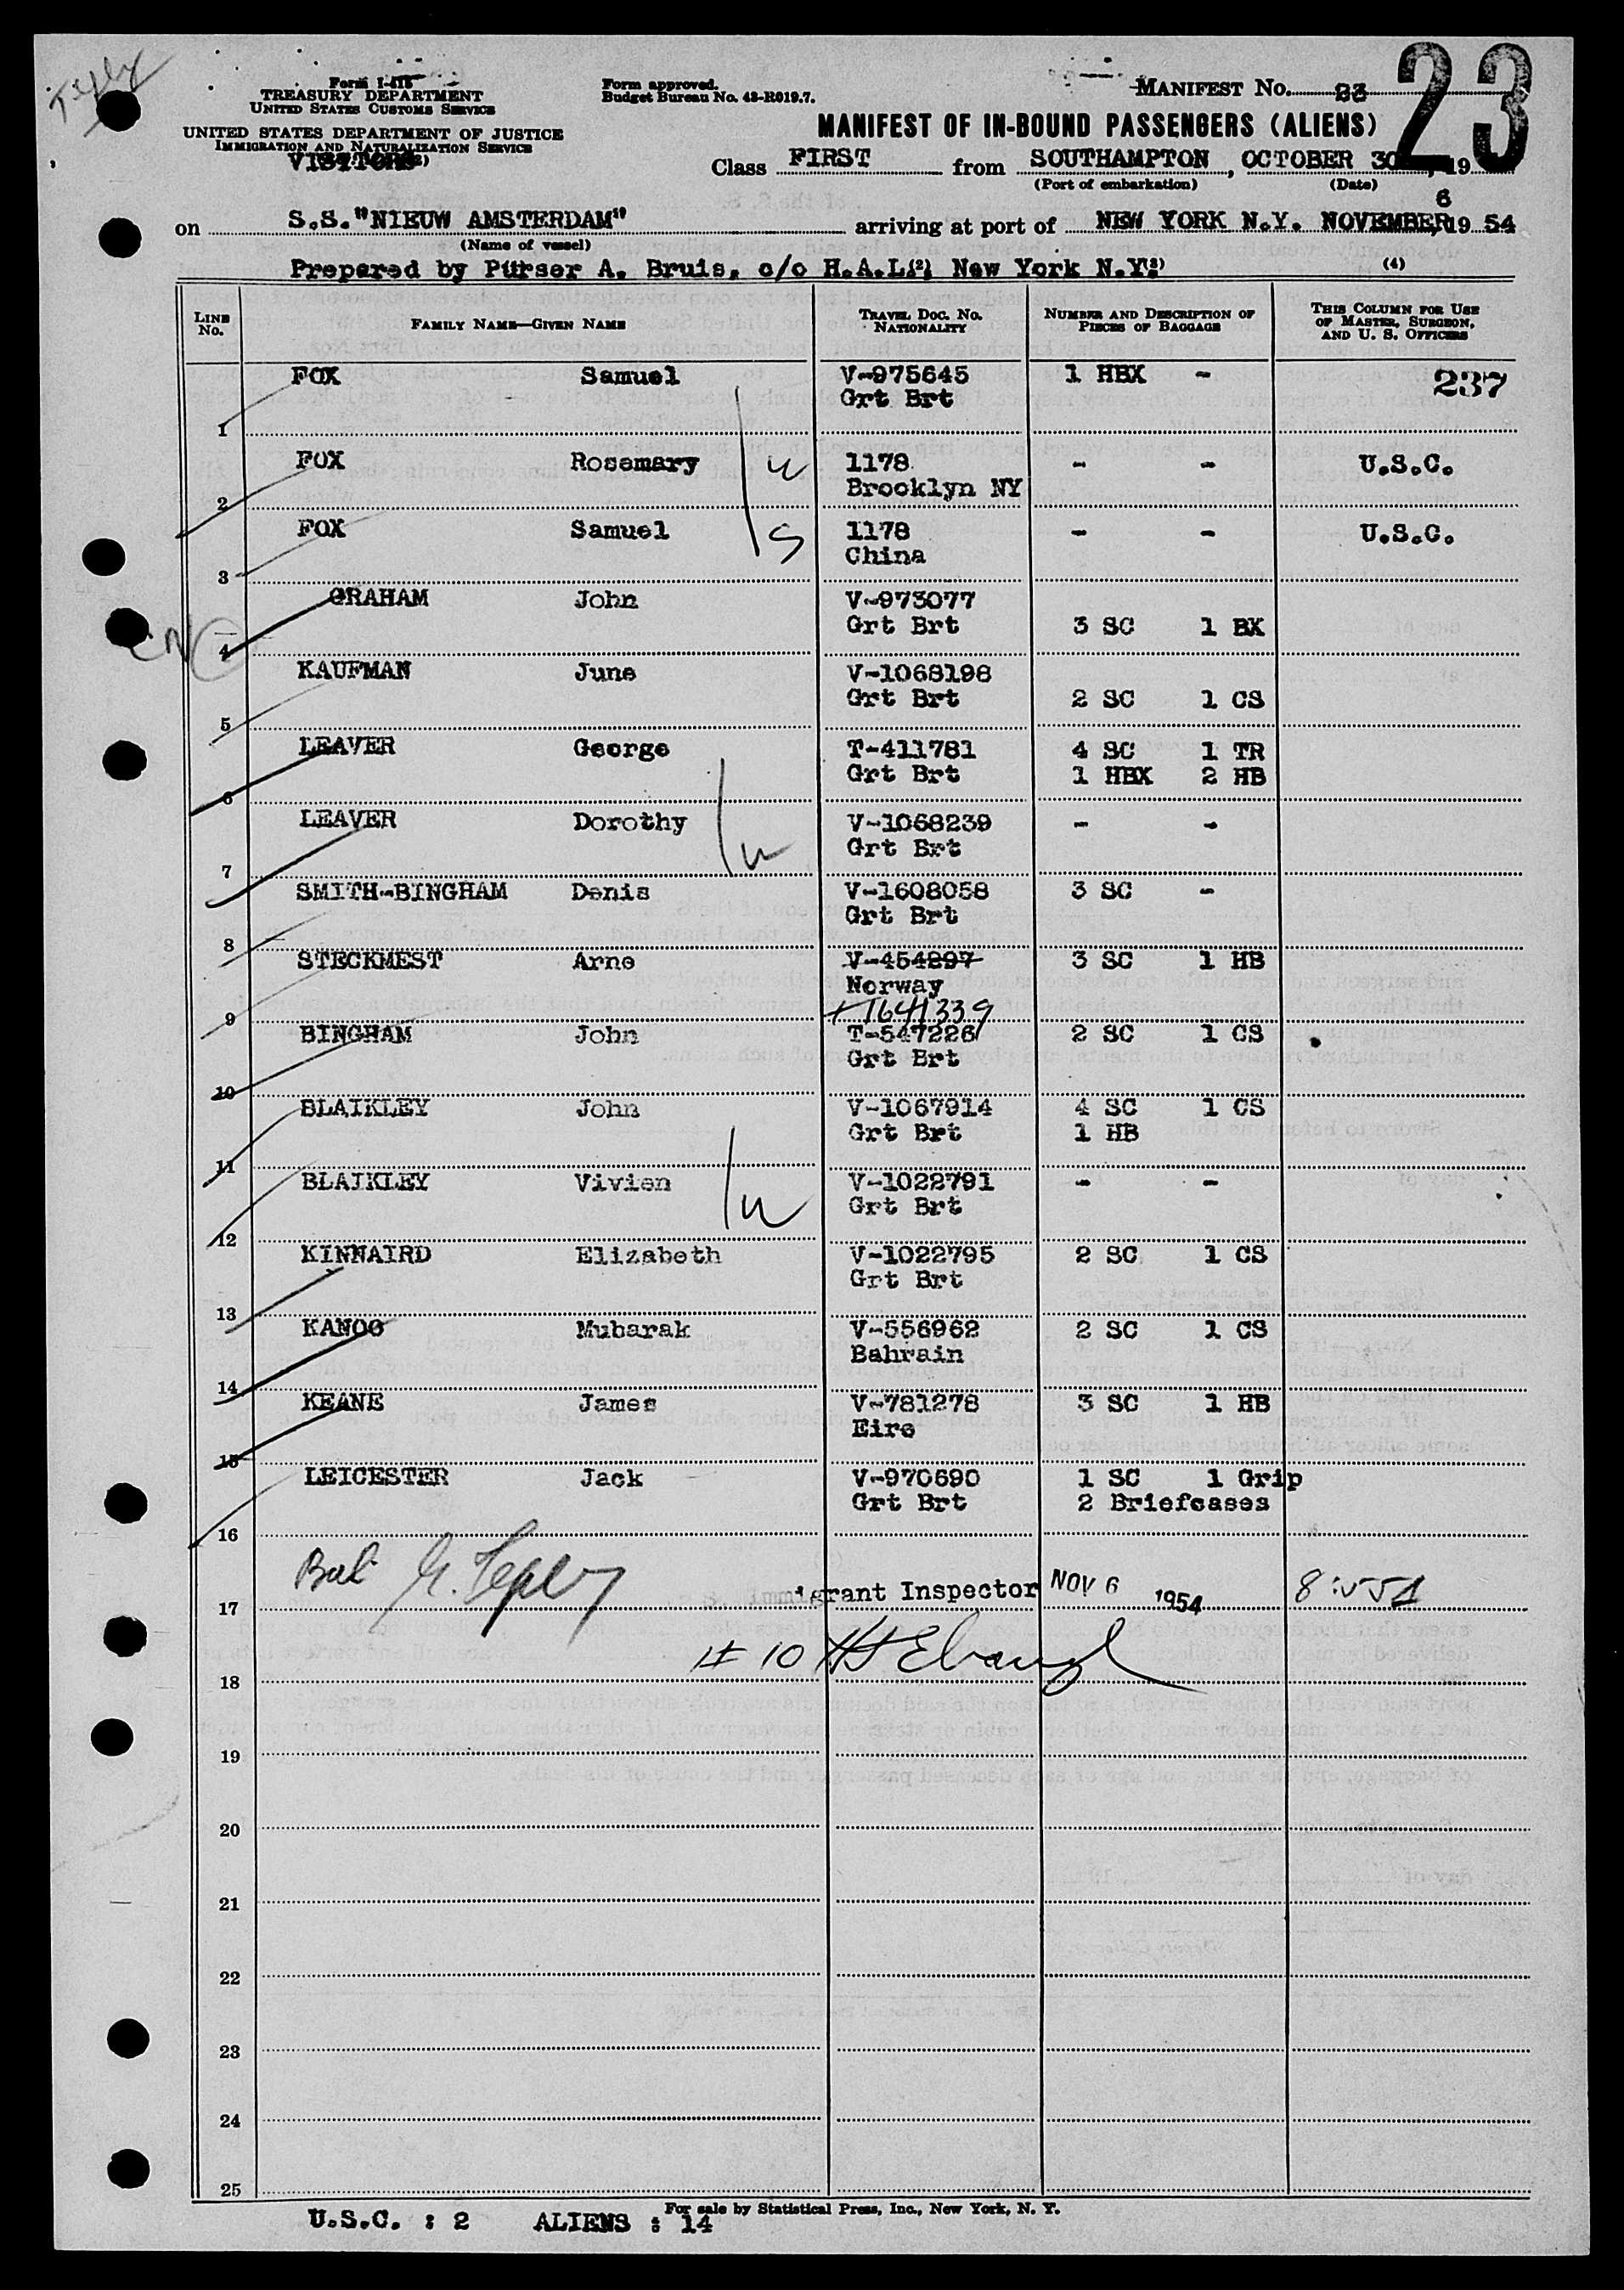 Form I-415
TREASURY DEPARTMENT
UNITED STATES CUSTOMS SERVICE
UNITED STATES DEPARTMENT OF JUSTICE
IMMIGRATION AND NATURALIZATION SERVICE
VISITORS
Form approved.
Budget Bureau No. 43-R019.7.
MANIFEST No. 23
23
MANIFEST OF IN-BOUND PASSENGERS (ALIENS)
Class FIRST from SOUTHAMPTON, OCTOBER 30, 19
(Port of embarkation) (Date)
on S.S."NIEUW AMSTERDAM" arriving at port of NEW YORK N.Y. NOVEMBER 6 19 54
(Name of vessel)
Prepared by Purser A. Bruis, c/o H.A.L. (2) New York N.Y. (3) (4)
LINE No. FAMILY NAME—GIVEN NAME TRAVEL DOC. NO. NATIONALITY NUMBER AND DESCRIPTION OF PIECES OF BAGGAGE THIS COLUMN FOR USE OF MASTER, SURGEON, AND U. S. OFFICERS
1 FOX Samuel V-975645 1 HBX - 237
Grt Brt
2 FOX Rosemary W 1178 - - U.S.C.
Brooklyn NY
3 FOX Samuel S 1178 - - U.S.C.
China
4 GRAHAM John V-973077
Grt Brt 3 SC 1 BX
5 KAUFMAN June V-1068198
Grt Brt 2 SC 1 CS
6 LEAVER George T-411781 4 SC 1 TR
Grt Brt 1 HBX 2 HB
7 LEAVER Dorothy W V-1068239 - -
Grt Brt
8 SMITH-BINGHAM Denis V-1608058 3 SC -
Grt Brt
9 STECKMEST Arne V-454297 3 SC 1 HB
Norway
1641339
10 BINGHAM John T-547226 2 SC 1 CS
Grt Brt
11 BLAIKLEY John V-1067914 4 SC 1 CS
Grt Brt 1 HB
12 BLAIKLEY Vivien W V-1022791 - -
Grt Brt
13 KINNAIRD Elizabeth V-1022795 2 SC 1 CS
Grt Brt
14 KANOO Mubarak V-556962 2 SC 1 CS
Bahrain
15 KEANE James V-781278 3 SC 1 HB
Eire
16 LEICESTER Jack V-970690 1 SC 1 Grip
Grt Brt 2 Briefcases
17 Immigrant Inspector NOV 6 1954
18 # 10
19
20
21
22
23
24
25
For sale by Statistical Press, Inc., New York, N. Y.
U.S.C. : 2 ALIENS : 14